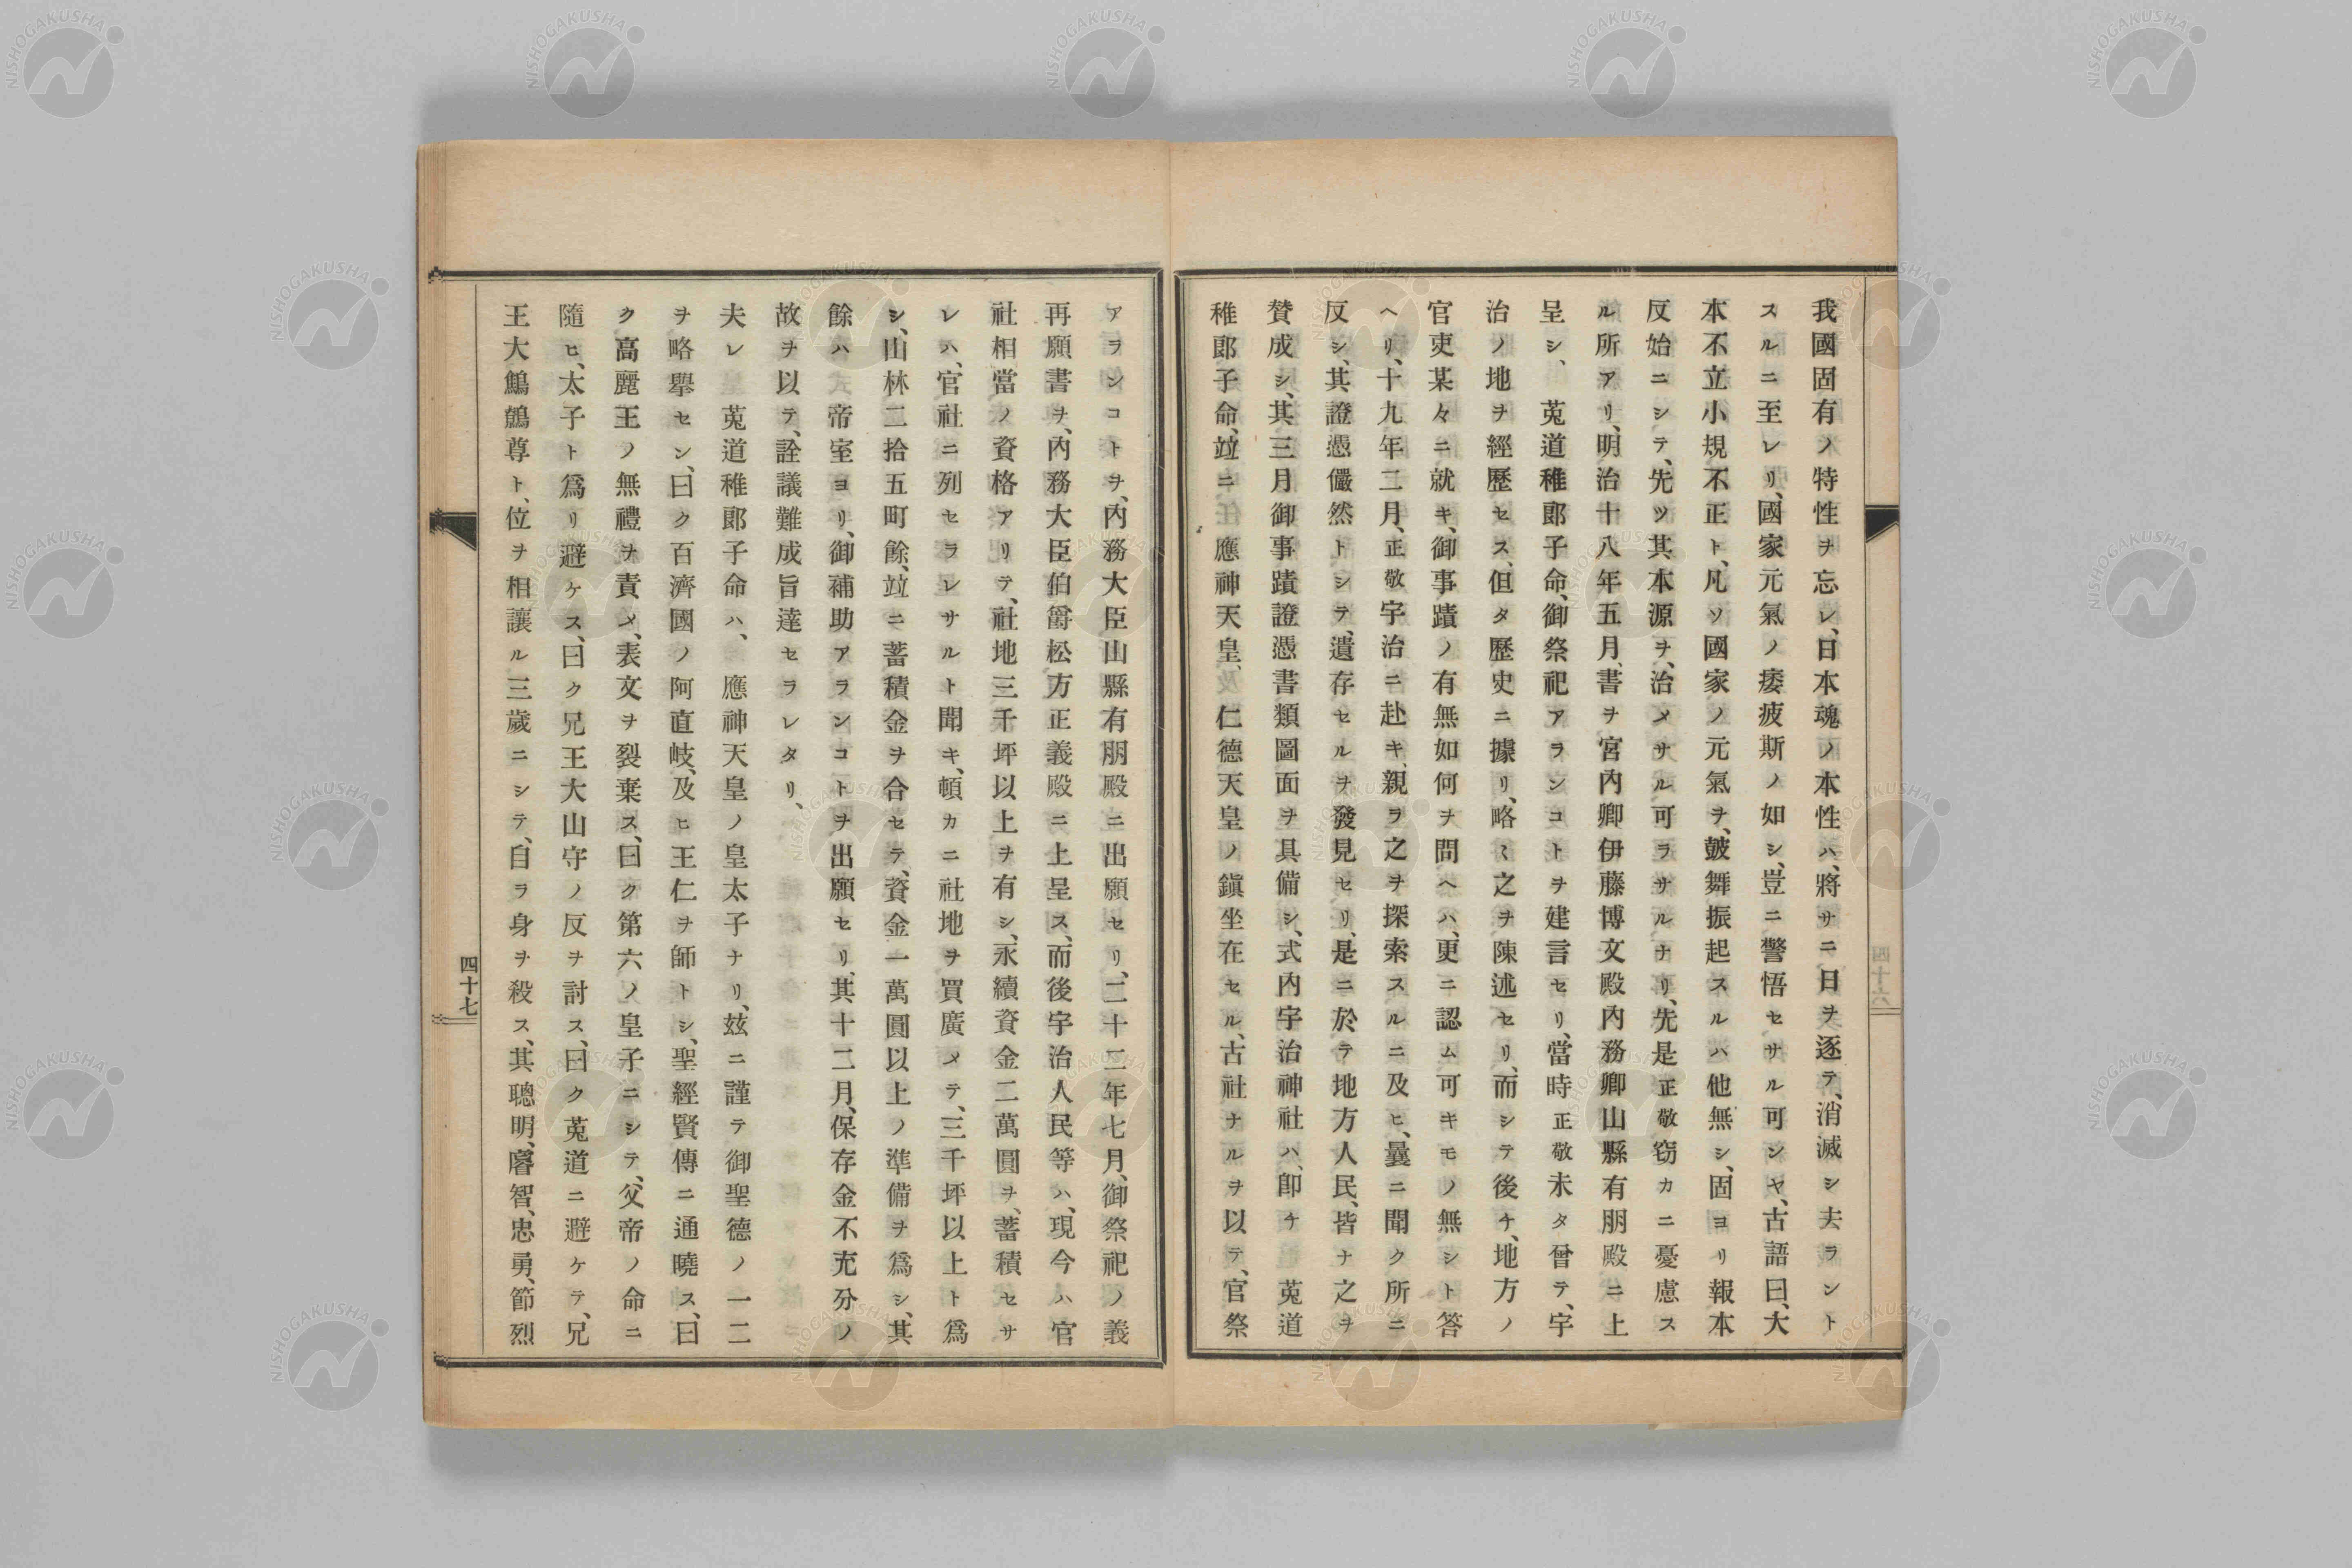 我國固有ノ特性ヲ忘レ、日本魂ノ本性ハ、將サニ日ヲ逐テ、消滅シ去ラント
スルニ至レリ、國家元氣ノ痿疲斯ノ如シ、豈ニ警悟セサル可シヤ、古語曰、大
本不立小規不正ト、凡ソ國家ノ元氣ヲ、皷舞振起スルハ他無シ、固ヨリ報本
反始ニシテ、先ツ其本源ヲ、治メサル可ラサルナリ、先是正敬窃カニ憂慮ス
ル所アリ、明治十八年五月、書ヲ宮內卿伊藤博文殿內務卿山縣有朋殿ニ上
呈シ、菟道稚郞子命、御祭祀アランコトヲ建言セリ、當時正敬未タ曾テ、宇
治ノ地ヲ經歷セス、但タ歷史ニ據リ、略ミ之ヲ陳述セリ、而シテ後チ、地方ノ
官吏某々ニ就キ、御事蹟ノ有無如何ヲ問ヘハ、更ニ認ム可キモノ無シト答
ヘリ、十九年二月、正敬宇治ニ赴キ、親ヲ之ヲ探索スルニ及ヒ、曩ニ聞ク所ニ
反シ、其證憑儼然トシテ、遺存セルヲ發見セリ、是ニ於テ地方人民、皆ナ之ヲ
贊成シ、其三月御事蹟證憑書類圖面ヲ具備シ、式內宇治神社ハ、卽チ菟道
稚郞子命、竝ニ應神天皇、仁德天皇ノ鎭坐在セル、古社ナルヲ以テ、官祭
アランコトヲ、內務大臣山縣有朋殿ニ出願セリ、二十二年七月、御祭祀ノ義
再願書ヲ、內務大臣伯爵松方正義殿ニ上呈ス、而後宇治人民等ハ、現今ハ官
社相當ノ資格アリテ、社地三千坪以上ヲ有シ、永續資金二萬圓ヲ、蓄積セサ
レハ、官社ニ列セラレサルト聞キ、頓カニ社地ヲ買廣メテ、三千坪以上ト爲
シ、山林二拾五町餘、竝ニ蓄積金ヲ合セテ、資金一萬圓以上ノ準備ヲ爲シ、其
餘ハ帝室ヨリ、御補助アランコトヲ出願セリ、其十二月、保存金不充分ノ
故ヲ以テ、詮議難成旨達セラレタリ、
夫レ菟道稚郞子命ハ、應神天皇ノ皇太子ナリ、玆ニ謹テ御聖德ノ一二
ヲ略擧セン、曰ク百濟國ノ阿直岐、及ヒ王仁ヲ師トシ、聖經賢傳ニ通曉ス、曰
ク、高麗王ノ無禮ヲ責メ、表文ヲ裂棄ス、曰ク第六ノ皇子ニシテ、父帝ノ命ニ
隨ヒ、太子ト爲リ避ケス、曰ク兄王大山守ノ反ヲ討ス、曰ク菟道ニ避ケテ、兄
王大鷦鷯尊ト、位ヲ相讓ル三歲ニシテ、自ラ身ヲ殺ス、其聰明、睿智、忠勇、節烈
四十七